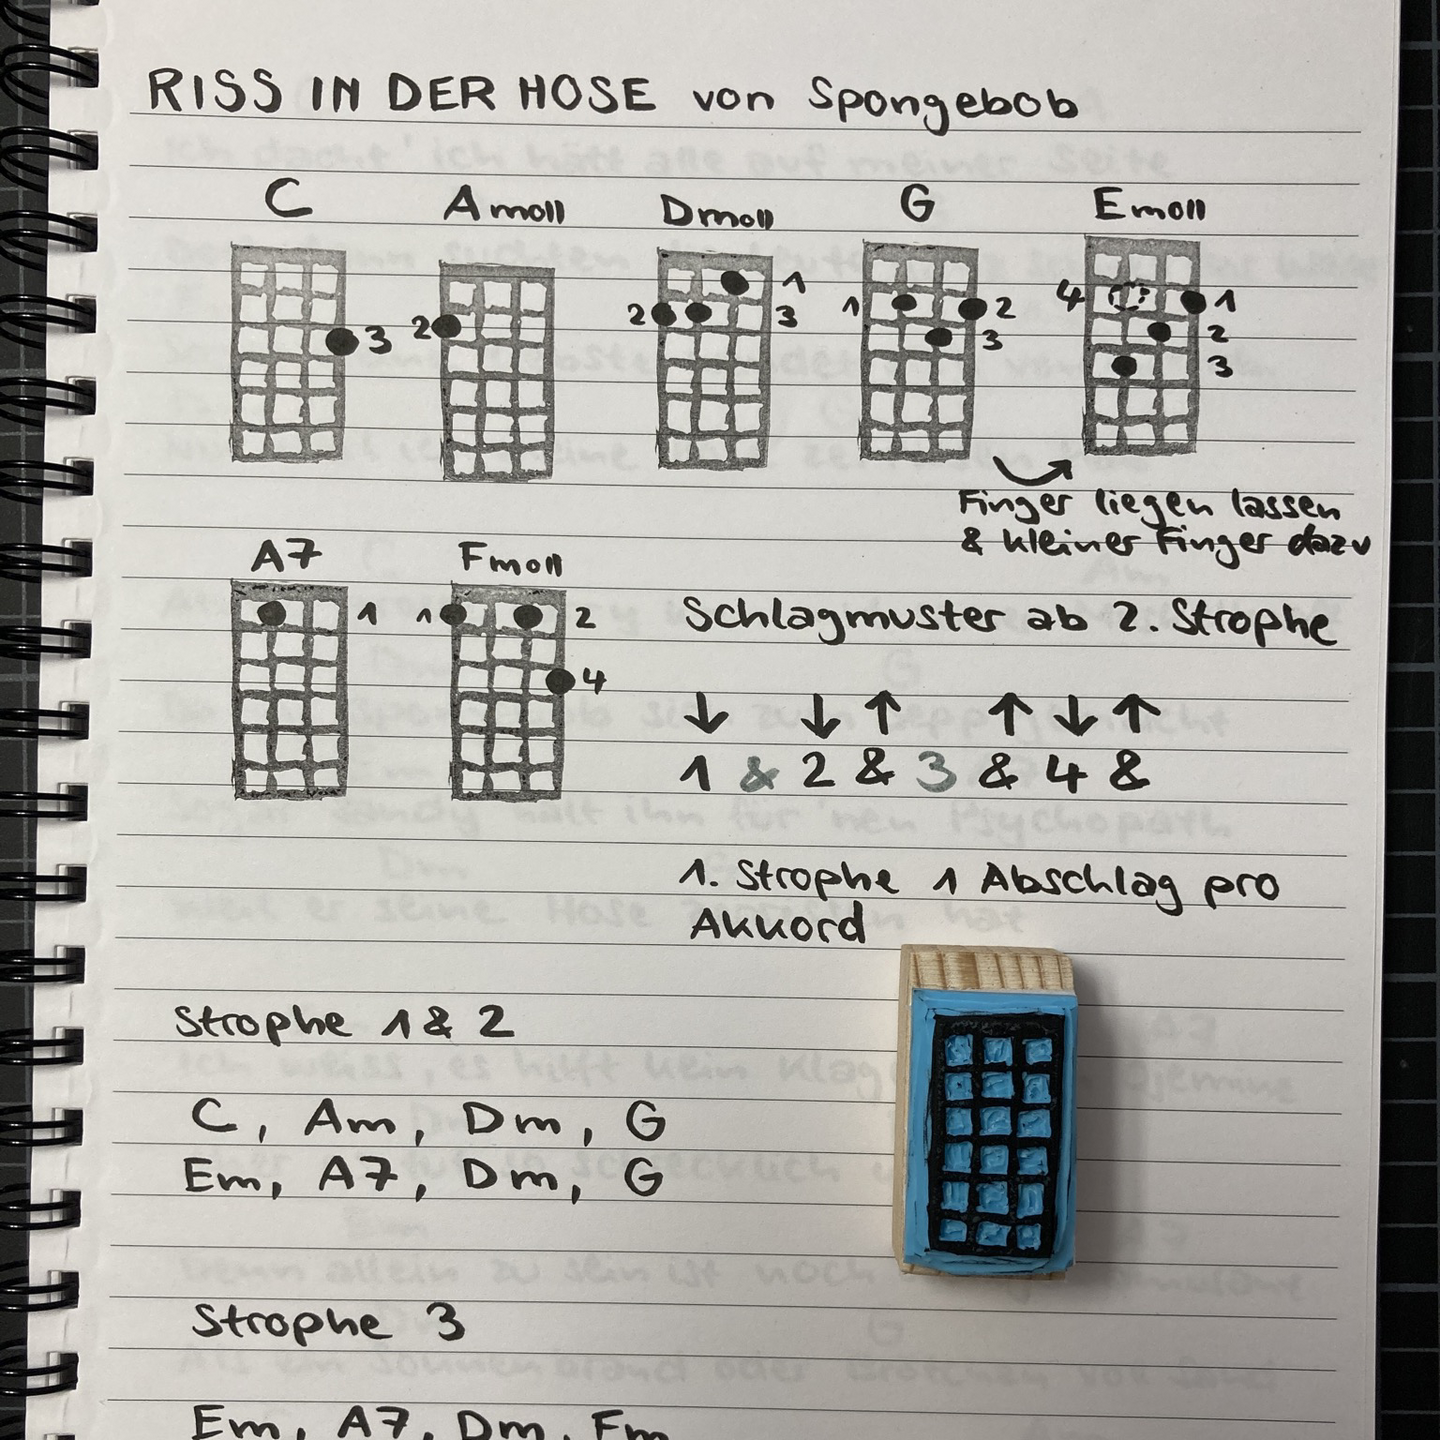 RISS IN DER HOSE von Spongebob
C Amoll Dmoll G Emoll
1
2 3 1 2 4 1
3 2 3 2
3
Finger liegen lassen
& kleiner Finger dazu
A7 Fmoll
1 1 2 Schlagmuster ab 2. Strophe
4
↓ ↓ ↑ ↑ ↓ ↑
1 & 2 & 3 & 4 &
1. Strophe 1 Abschlag pro
Akkord
Strophe 1 & 2
C, Am, Dm, G
Em, A7, Dm, G
Strophe 3
Em, A7, Dm, Fm